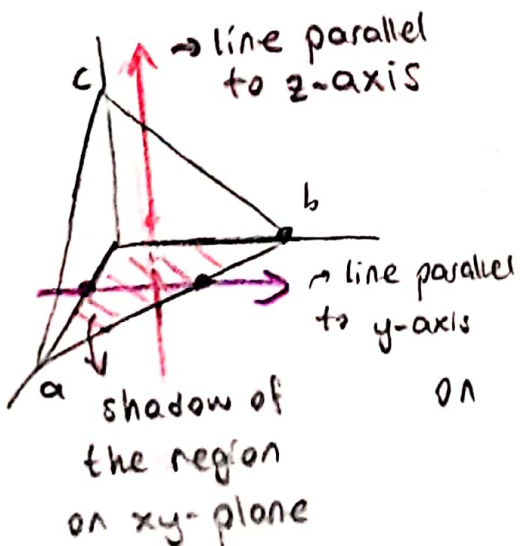 → line parallel
to z-axis
c
b
→ line parallel
to y-axis
a
on
shadow of
the region
on xy-plane